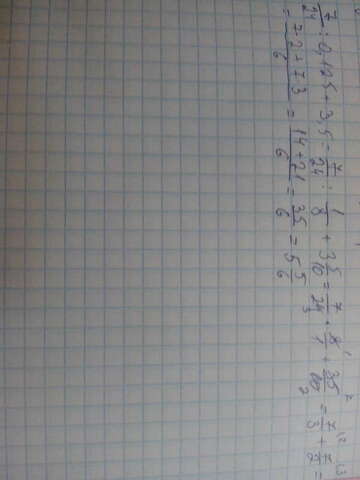 7/24 : 0,125 + 3,5 = 7/24 : 1/8 + 3 5/10 = 7/24 · 8/1 + 35/10 = 7/3 + 7/2 =
= 7·2+7·3/6 = 14+21/6 = 35/6 = 5 5/6